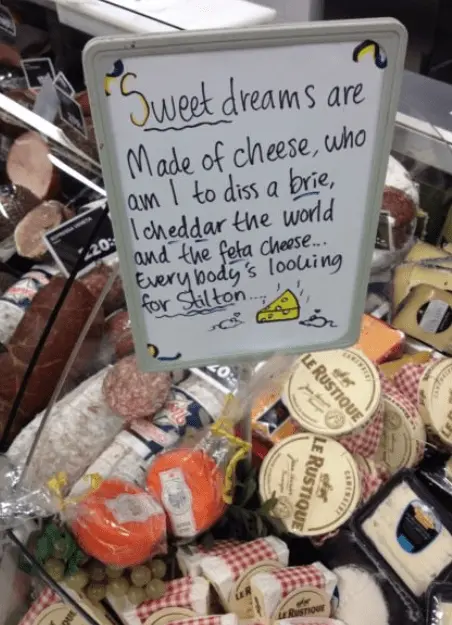 Sweet dreams are
Made of cheese, who
am I to diss a brie,
I cheddar the world
and the feta cheese...
Everybody's looking
for Stilton....
£20
LE RUSTIQUE
CAMEMBERT
LE RUSTIQUE
CAMEMBERT
LE RUSTIQUE